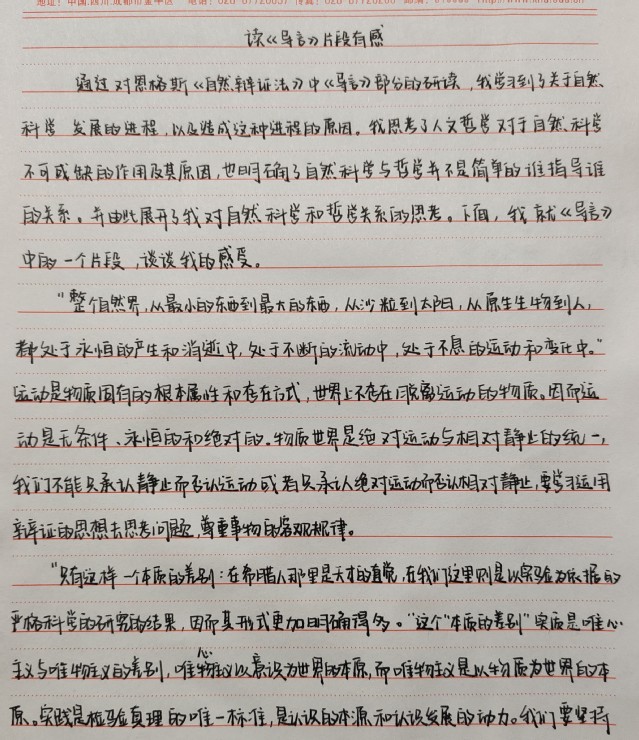 地址：中国.四川.成都市金牛区 电话：028-87720037 传真：028-87720200
读《导言》片段有感
通过对恩格斯《自然辩证法》中《导言》部分的研读，我学习到了关于自然
科学 发展的进程，以及造成这种进程的原因。我思考了人文哲学对于自然科学
不可或缺的作用及其原因，也明确了自然科学与哲学并不是简单的谁指导谁
的关系。并由此展开了我对自然科学和哲学关系的思考。下面，我就《导言》
中的一个片段，谈谈我的感受。
“整个自然界，从最小的东西到最大的东西，从沙粒到太阳，从原生生物到人，
都处于永恒的产生和消逝中，处于不断的流动中，处于不息的运动和变化中。”
运动是物质固有的根本属性和存在方式，世界上不存在脱离运动的物质。因而运
动是无条件、永恒的和绝对的。物质世界是绝对运动与相对静止的统一，
我们不能只承认静止而否认运动或者只承认绝对运动而否认相对静止，要学习运用
辩证的思想去思考问题，尊重事物的客观规律。
“只有这样一个本质的差别：在希腊人那里是天才的直觉，在我们这里则是以实验为依据的
严格科学的研究的结果，因而其形式更加明确得多。”这个“本质的差别”实质是唯心
主义与唯物主义的差别，唯心主义以意识为世界的本原，而唯物主义是以物质为世界的本
原。实践是检验真理的唯一标准，是认识的来源和认识发展的动力。我们要坚持